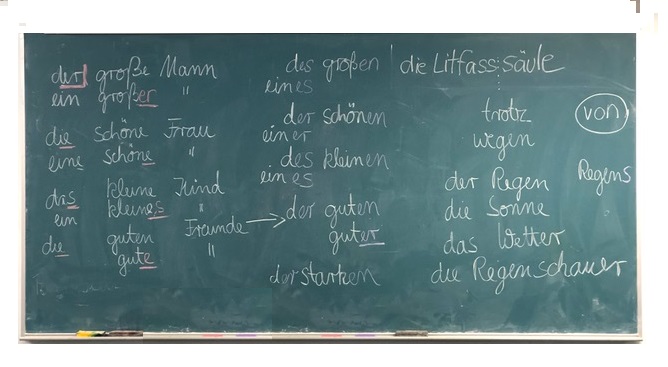 der große Mann
ein großer "
die schöne Frau
eine schöne "
das kleine Kind
ein kleines "
die guten Freunde
gute "
des großen
eines
der schönen
einer
des kleinen
eines
der guten
guter
der starken
die Litfass:säule
trotz
wegen
von
der Regen
Regens
die Sonne
das Wetter
die Regenschauer